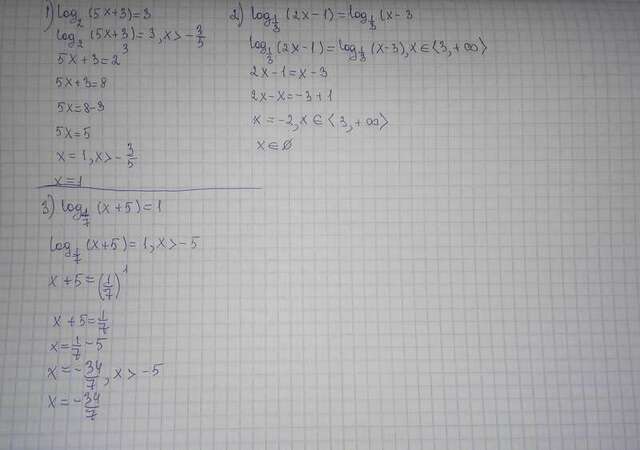 1) log₂(5x+3)=3
log₂(5x+3)=3, x>-3/5
5x+3=2³
5x+3=8
5x=8-3
5x=5
x=1, x>-3/5
x=1
2) log_1/3(2x-1)=log_1/3(x-3
log_1/3(2x-1)=log_1/3(x-3), x∈⟨3,+∞⟩
2x-1=x-3
2x-x=-3+1
x=-2, x∈⟨3,+∞⟩
x∈∅
3) log_1/7(x+5)=1
log_1/7(x+5)=1, x>-5
x+5=(1/7)¹
x+5=1/7
x=1/7-5
x=-34/7, x>-5
x=-34/7